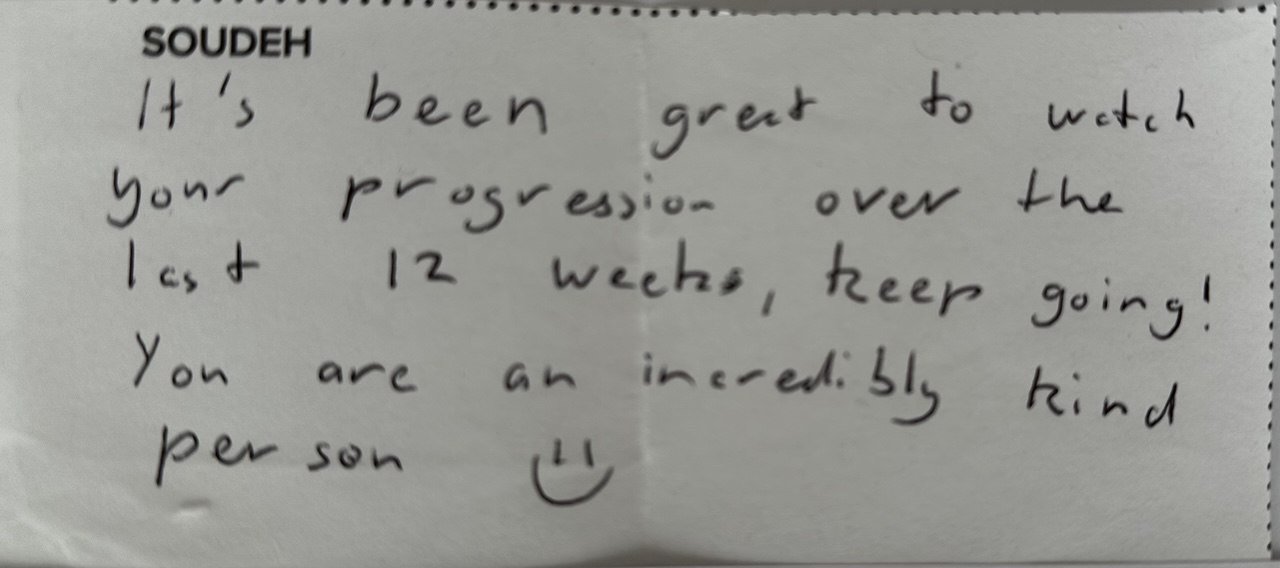 SOUDEH
It's been great to watch
your progression over the
last 12 weeks, keep going!
You are an incredibly kind
person